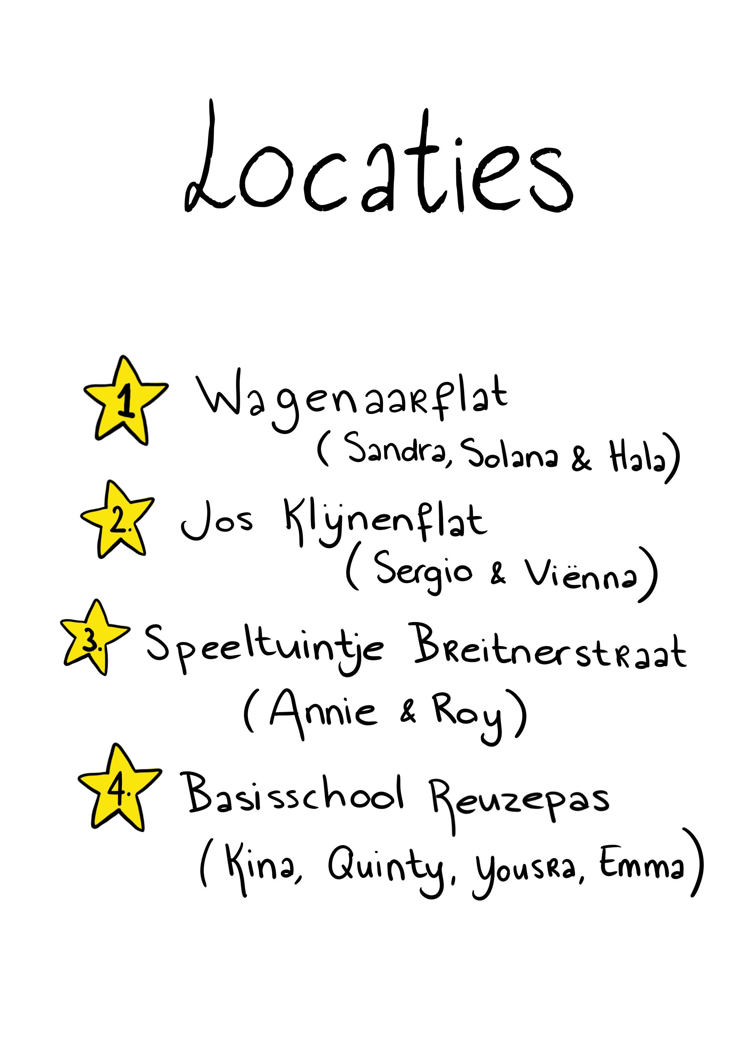 Locaties
1 Wagenaarflat
(Sandra, Solana & Hala)
2. Jos Klijnenflat
(Sergio & Viënna)
3. Speeltuintje Breitnerstraat
(Annie & Roy)
4. Basisschool Reuzepas
(Kina, Quinty, Yousra, Emma)